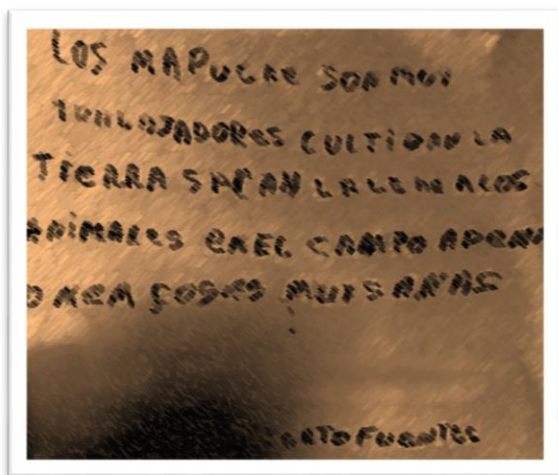 LOS MAPUCHE SON MUY
TRABAJADORES CULTIVAN LA
TIERRA SACAN LA LANA A LOS
ANIMALES EN EL CAMPO ADEM
COMEN COSAS MUY SANAS
FUENTES